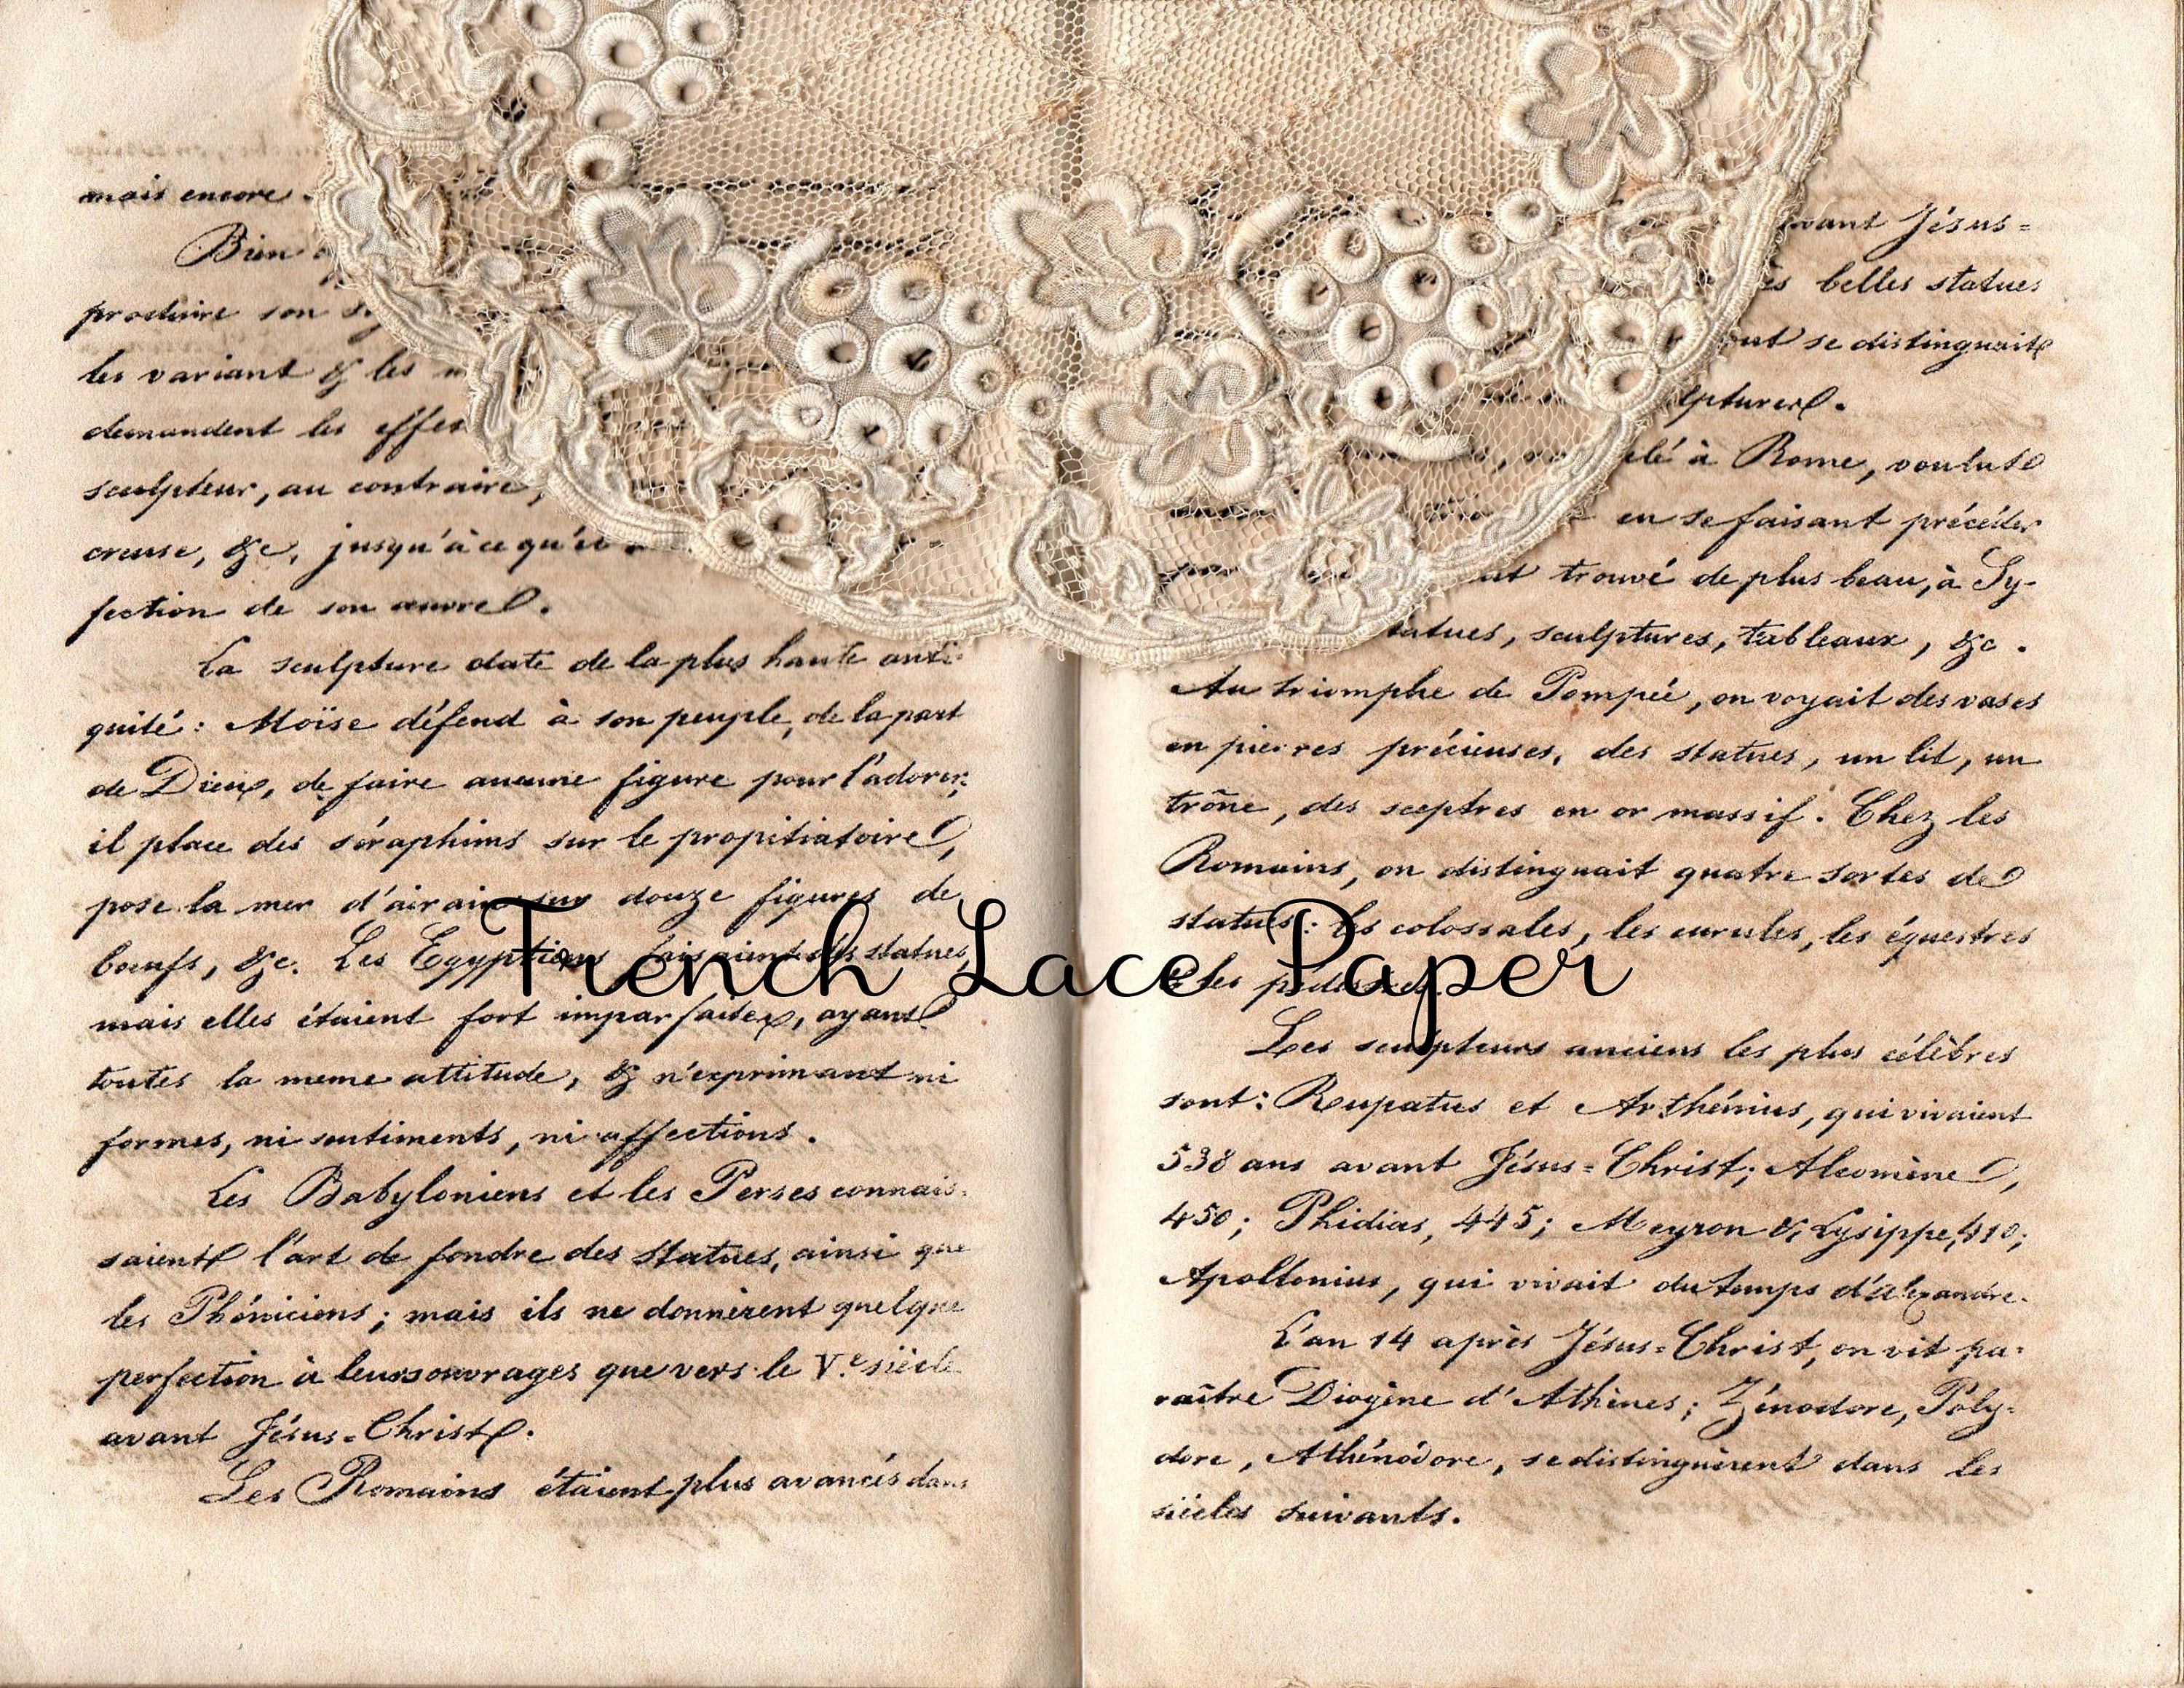 mais encore
Bien
produire son
les variant & les
demandent les effet
sculpteur, au contraire,
creuse, &c, jusqu'à ce qu'il
fection de son œuvre.
La sculpture date de la plus haute anti-
quité : Moïse défend à son peuple, de la part
de Dieu, de faire aucune figure pour l'adorer;
il place des séraphims sur le propitiatoire,
pose la mer d'airain sur douze figures de
bœufs, &c. Les Egyptiens faisaient des statues,
mais elles étaient fort imparfaites, ayant
toutes la meme attitude, & n'exprimant ni
formes, ni sentiments, ni affections.
Les Babyloniens et les Perses connais-
saient l'art de fondre des statues, ainsi que
les Phéniciens ; mais ils ne donnèrent quelque
perfection à leurs ouvrages que vers le V.e siècle
avant Jésus=Christ.
Les Romains étaient plus avancés dans
vant Jésus=
es belles statues
ut se distinguait
lptures.
elé à Rome, voulut
en se faisant précéder
ut trouvé de plus beau, à Sy-
tatues, sculptures, tableaux, &c.
Au triomphe de Pompée, on voyait des vases
en pierres précieuses, des statues, un lit, un
trône, des sceptres en or massif. Chez les
Romains, on distinguait quatre sortes de
statues : les colossales, les curules, les équestres
& les pédestres.
Les sculpteurs anciens les plus célèbres
sont : Rupatus et Arthénius, qui vivaient
538 ans avant Jésus=Christ; Alcomène,
450; Phidias, 445; Meyron & Lysippe, 410;
Apollonius, qui vivait du temps d'Alexandre.
L'an 14 après Jésus=Christ, on vit pa-
raître Diogène d'Athènes; Zénodore, Poly-
dore, Athénodore, se distinguèrent dans les
siècles suivants.
French Lace Paper